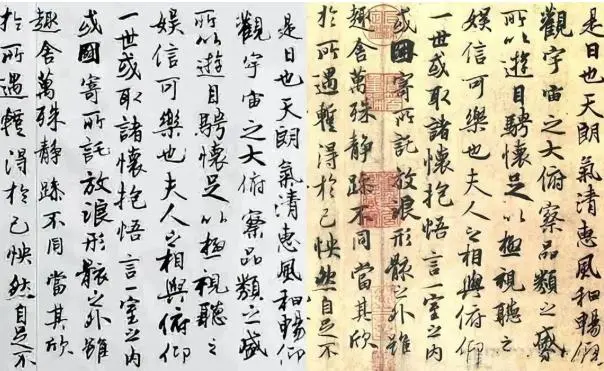 是日也天朗氣清惠風和暢仰
觀宇宙之大俯察品類之盛
所以遊目騁懷足以極視聽之
娛信可樂也夫人之相與俯仰
一世或取諸懷抱悟言一室之內
或因寄所託放浪形骸之外雖
趣舍萬殊靜躁不同當其欣
於所遇暫得於己怏然自足不
是日也天朗氣清惠風和暢仰
觀宇宙之大俯察品類之盛
所以遊目騁懷足以極視聽之
娛信可樂也夫人之相與俯仰
一世或取諸懷抱悟言一室之內
或因寄所託放浪形骸之外雖
趣舍萬殊靜躁不同當其欣
於所遇暫得於己怏然自足不